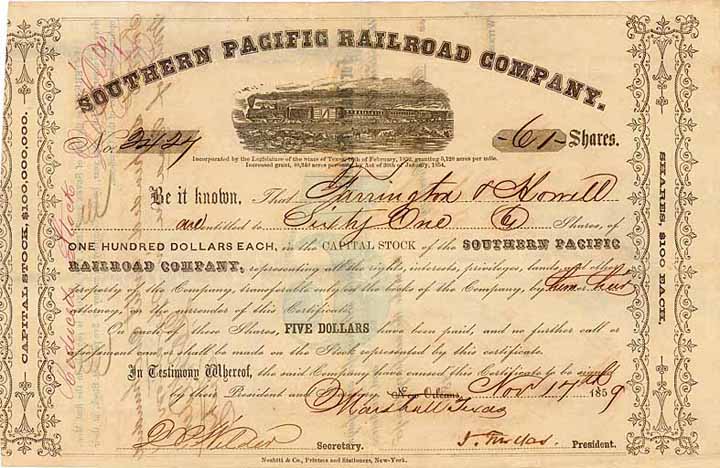 SOUTHERN PACIFIC RAILROAD COMPANY.
No. 2427
61 Shares.
Incorporated by the Legislature of the State of Texas, 16th of February, 1852, granting 5,120 acres per mile.
Increased grant, 10,240 acres per mile, by Act of 30th of January, 1854.
Be it known, That Farrington & Howell
are entitled to Sixty One Shares, of
ONE HUNDRED DOLLARS EACH, in the CAPITAL STOCK of the SOUTHERN PACIFIC
RAILROAD COMPANY, representing all the rights, interests, privileges, lands and other
property of the Company, transferable only on the books of the Company, by him or their
attorney, on the surrender of this Certificate.
On each of these Shares, FIVE DOLLARS have been paid, and no further call or
assessment can or shall be made on the Stock represented by this certificate.
In Testimony Whereof, the said Company have caused this Certificate to be signed
by their President and New Orleans, Nov 17th 1859
Marshall Texas
Secretary. President.
Nesbitt & Co., Printers and Stationers, New-York.
CAPITAL STOCK, $100,000,000.
SHARES, $100 EACH.
Stock